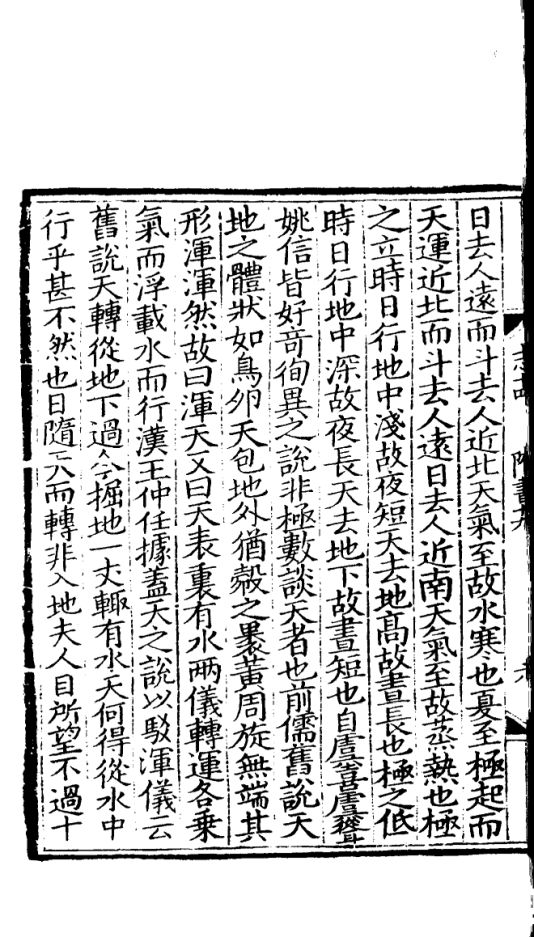 日去人遠而斗去人近北天氣至故水寒也夏至極起而
天運近北而斗去人遠日去人近南天氣至故蒸熱也極
之立時日行地中淺故夜短天去地高故晝長也極之低
時日行地中深故夜長天去地下故晝短也自虞喜虞聳
姚信皆好竒徇異之說非極數談天者也前儒舊說天
地之體狀如鳥卵天包地外猶殼之褁黃周旋無端其
形渾渾然故曰渾天又曰天表裏有水兩儀轉運各乗
氣而浮載水而行漢王仲任據蓋天之說以駮渾儀云
舊說天轉從地下過今掘地一丈輙有水天何得從水中
行乎甚不然也日隨天而轉非入地夫人目所望不過十